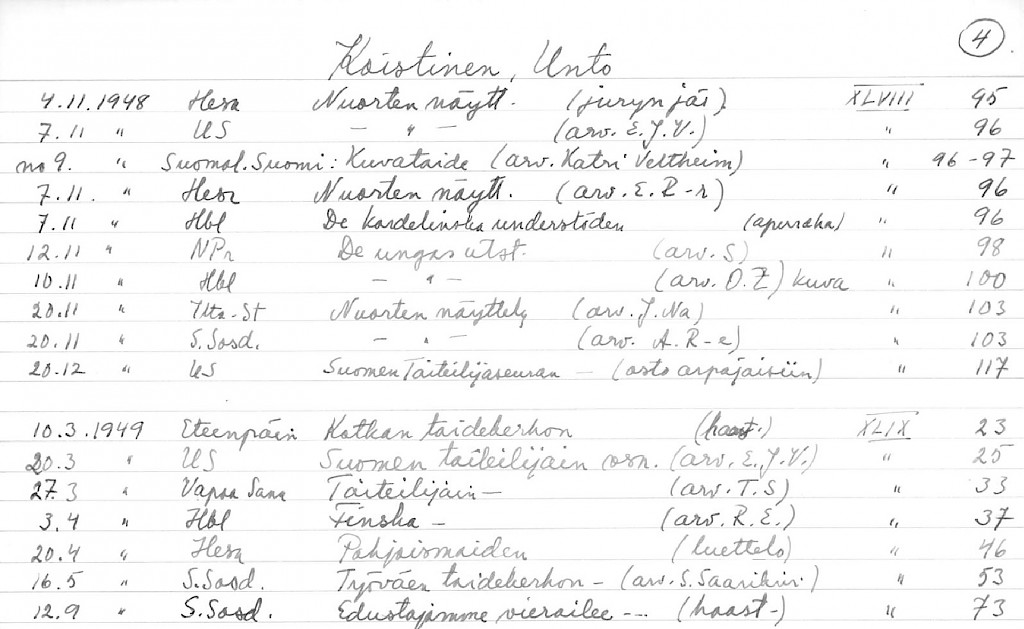 4
Koistinen, Unto
4.11.1948 Hesa Nuorten näytt. (juryn jäs.) XLVIII 95
7.11 " US — " — (arv. E.J.V.) " 96
no 9. " Suomal. Suomi: Kuvataide (arv. Katri Veltheim) " 96-97
7.11. " Hesa Nuorten näytt. (arv. E.R-r) " 96
7.11 " Hbl De kordelinska understöden (apuraha) " 96
12.11 " NPr De ungas utst. (arv. S) " 98
10.11 " Hbl — " — (arv. O.Z) kuva " 100
20.11 " Ilta-St Nuorten näyttely (arv. J.Na) " 103
20.11 " S.Sosd. — " — (arv. A.R-e) " 103
20.12 " US Suomen Taiteilijaseuran — (osto arpajaisiin) " 117
10.3.1949 Eteenpäin Kotkan taidekerhon (haast.) XLIX 23
20.3 " US Suomen taiteilijain osn. (arv. E.J.V.) " 25
27.3 " Vapaa Sana Taiteilijain — (arv. T.S) " 33
3.4 " Hbl Finska — (arv. R.E.) " 37
20.4 " Hesa Pohjoismaiden (luettelo) " 46
16.5 " S.Sosd. Työväen taidekerhon — (arv. S. Saarikivi) " 53
12.9 " S.Sosd. Edustajamme vierailee --- (haast-) " 73